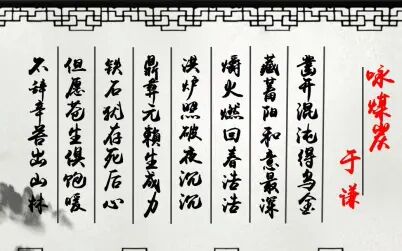 咏煤炭
于谦
凿开混沌得乌金
藏蓄阳和意最深
爝火燃回春浩浩
洪炉照破夜沉沉
鼎彝元赖生成力
铁石犹存死后心
但愿苍生俱饱暖
不辞辛苦出山林